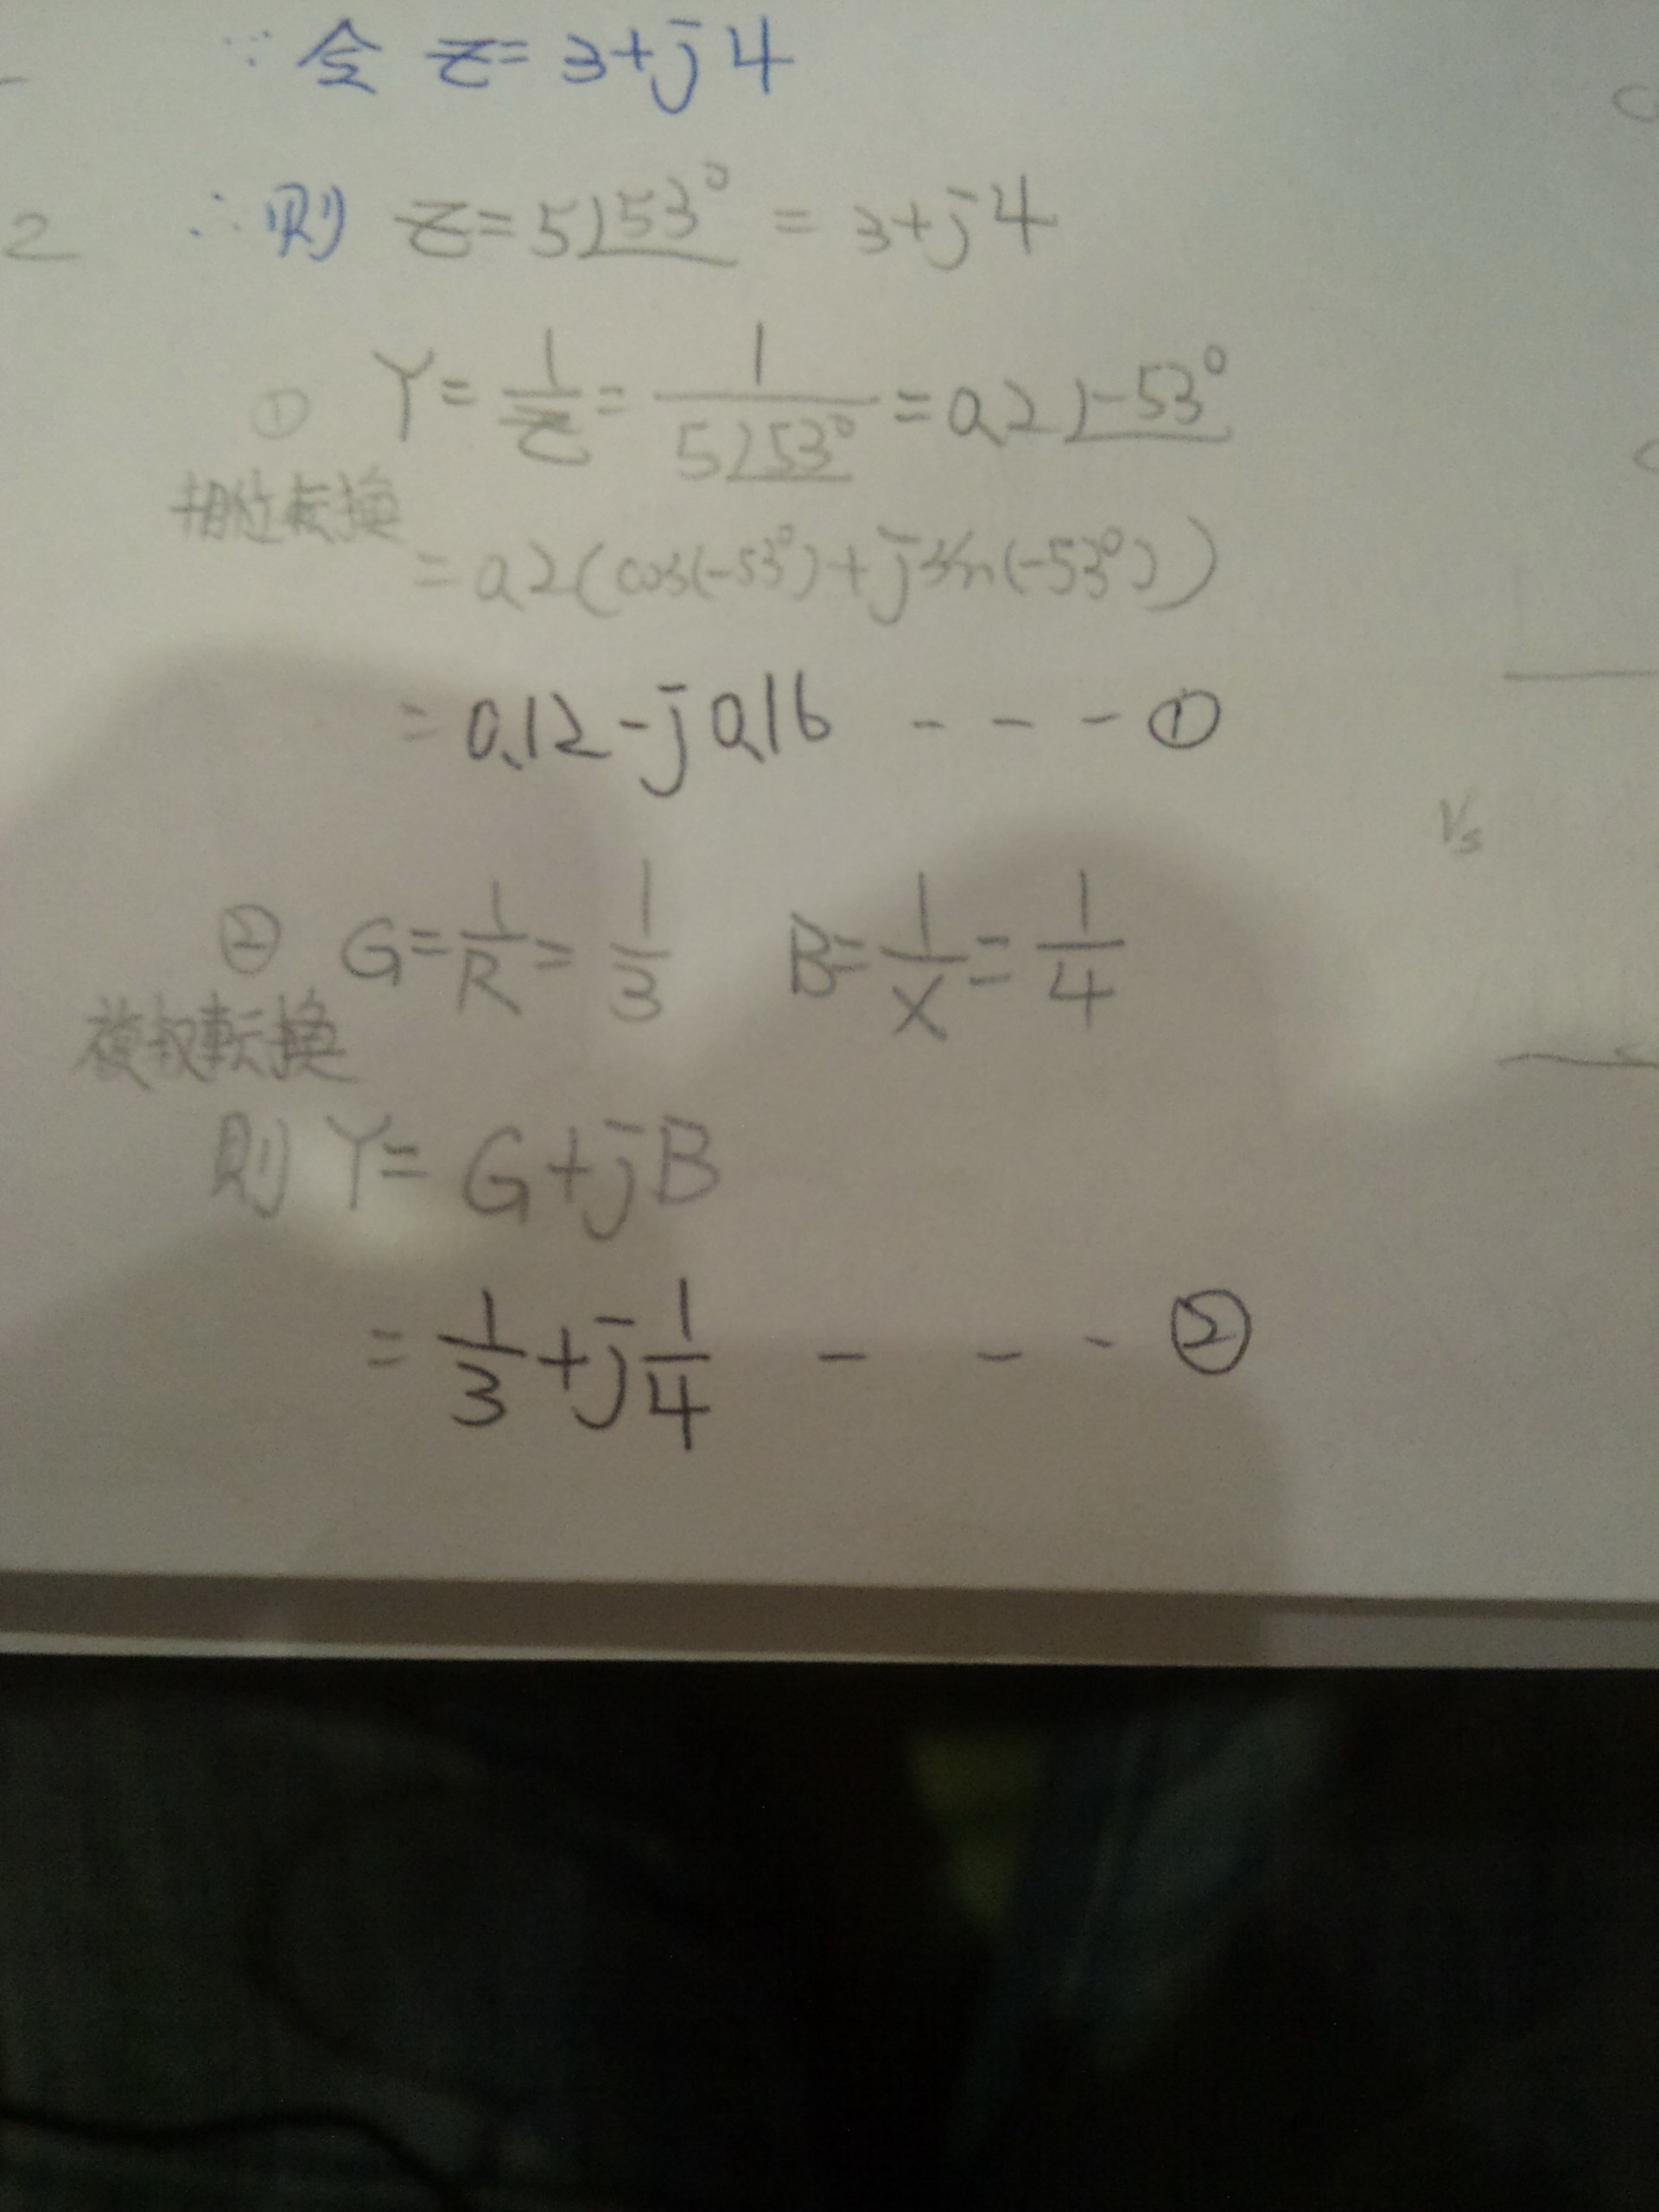 ∵ 令 Z = 3+j4
2 ∴ 則 Z = 5∠53° = 3+j4
① Y = 1/Z = 1/5∠53° = 0.2∠-53°
相位転換
= 0.2(cos(-53°)+jsin(-53°))
= 0.12-j0.16 - - - ①
Vs
② G = 1/R = 1/3 B = 1/X = 1/4
複数転換
則 Y = G+jB
= 1/3+j1/4 - - - ②